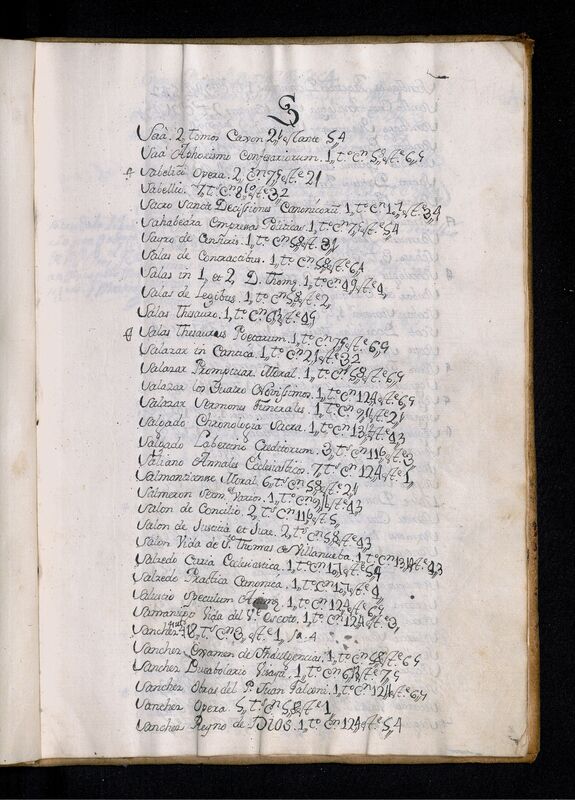 S
Saá. 2,, tomos Caxon 21,, estante 5,, 4
Saá Aphorismi Confesariorum. 1,, t.º Cn 58,, Ate. 6,, 5
Sabelico Opera. 2,, Cn 75,, Ate 21
Sabellio. 7,, t.º Cn 810, Ate 3,, 2
Sacro Sancta Decissiones Canonicoru. 1,, t.º Cn 17,, Ate 3,, 4
Sahabedra Empresas Politicas. 1,, t.º Cn 7,, Ate 5,, 4
Sayro de Censuris. 1,, t.º Cn 58,, Ate. 31
Salas de Contractibus. 1,, t.º Cn 58,, Ate 6,, 1
Salas in 1,, et 2,, D. Thomę. 1,, t.º Cn
Salas de Legibus. 1,, t.º Cn 58,, Ate 2,,
Salas Thesauro. 1,, t.º Cn
Salas Thesaurus Poetarum. 1,, t.º Cn 75,, Ate. 6,, 5
Salazar in Cantica. 1,, t.º Cn 21,, Ate 3,, 2
Salazar Promptuar. Moral. 1,, t.º Cn 58,, Ate. 6,, 5
Salazar los Quatro Novissimos. 1,, t.º Cn 124,, Ate 6,, 5
Salazar Sermones Funerales. 1,, t.º Cn 91,, Ate 2,,
Salgado Chronologia Sacra. 1,, t.º Cn 134,, Ate 4,, 3
Salgado Laberento Creditorum. 3,, t.º Cn 116,, Ate 3,,
Saliano Annales Ecclesiastico. 7,, t.º Cn 124,, Ate 1,,
Salmanticense Moral. 6,, t.º Cn 58,, Ate 21
Salmeron Serm.s Varios. 1,, t.º Cn 91,, Ate 4,, 3
Salon de Concilio. 2,, t.s Cn 116,, Ate 5,,
Salon de Justitia et Jure. 2,, t.s Cn 58,, Ate 4,, 3
Salon Vida de S.to Thomas de Villanueba. 1,, t.º Cn 134,, Ate 4,, 3
Salzedo Curia Eclesiastica. 1,, t.º Cn 17,, Ate 5,, 4
Salzedo Practica Canonica. 1,, t.º Cn 17,, Ate 4,,
Speculum 1,, t.º Cn 124,, Ate 6,, 5
Samaniego Vida del V.e Escoto. 1,, t.º Cn 124,, Ate 3,,
Sanchez 8,, t.s Cn 3,, Ate 1,,
Sanchez Examen de Indulgencias. 1,, t.º Cn 58,, Ate 6,, 5
Sanchez Vocabolario 1,, t.º Cn 67,, Ate 7,, 5
Sanchez Obras del P. Juan Falconi. 1,, t.º Cn 124,, Ate 6,, 5
Sanchez Opera. 5,, t.s Cn 58,, Ate 1,,
Sanchez Reyno de DIOS. 1,, t.º Cn 124,, Ate 5,, 4